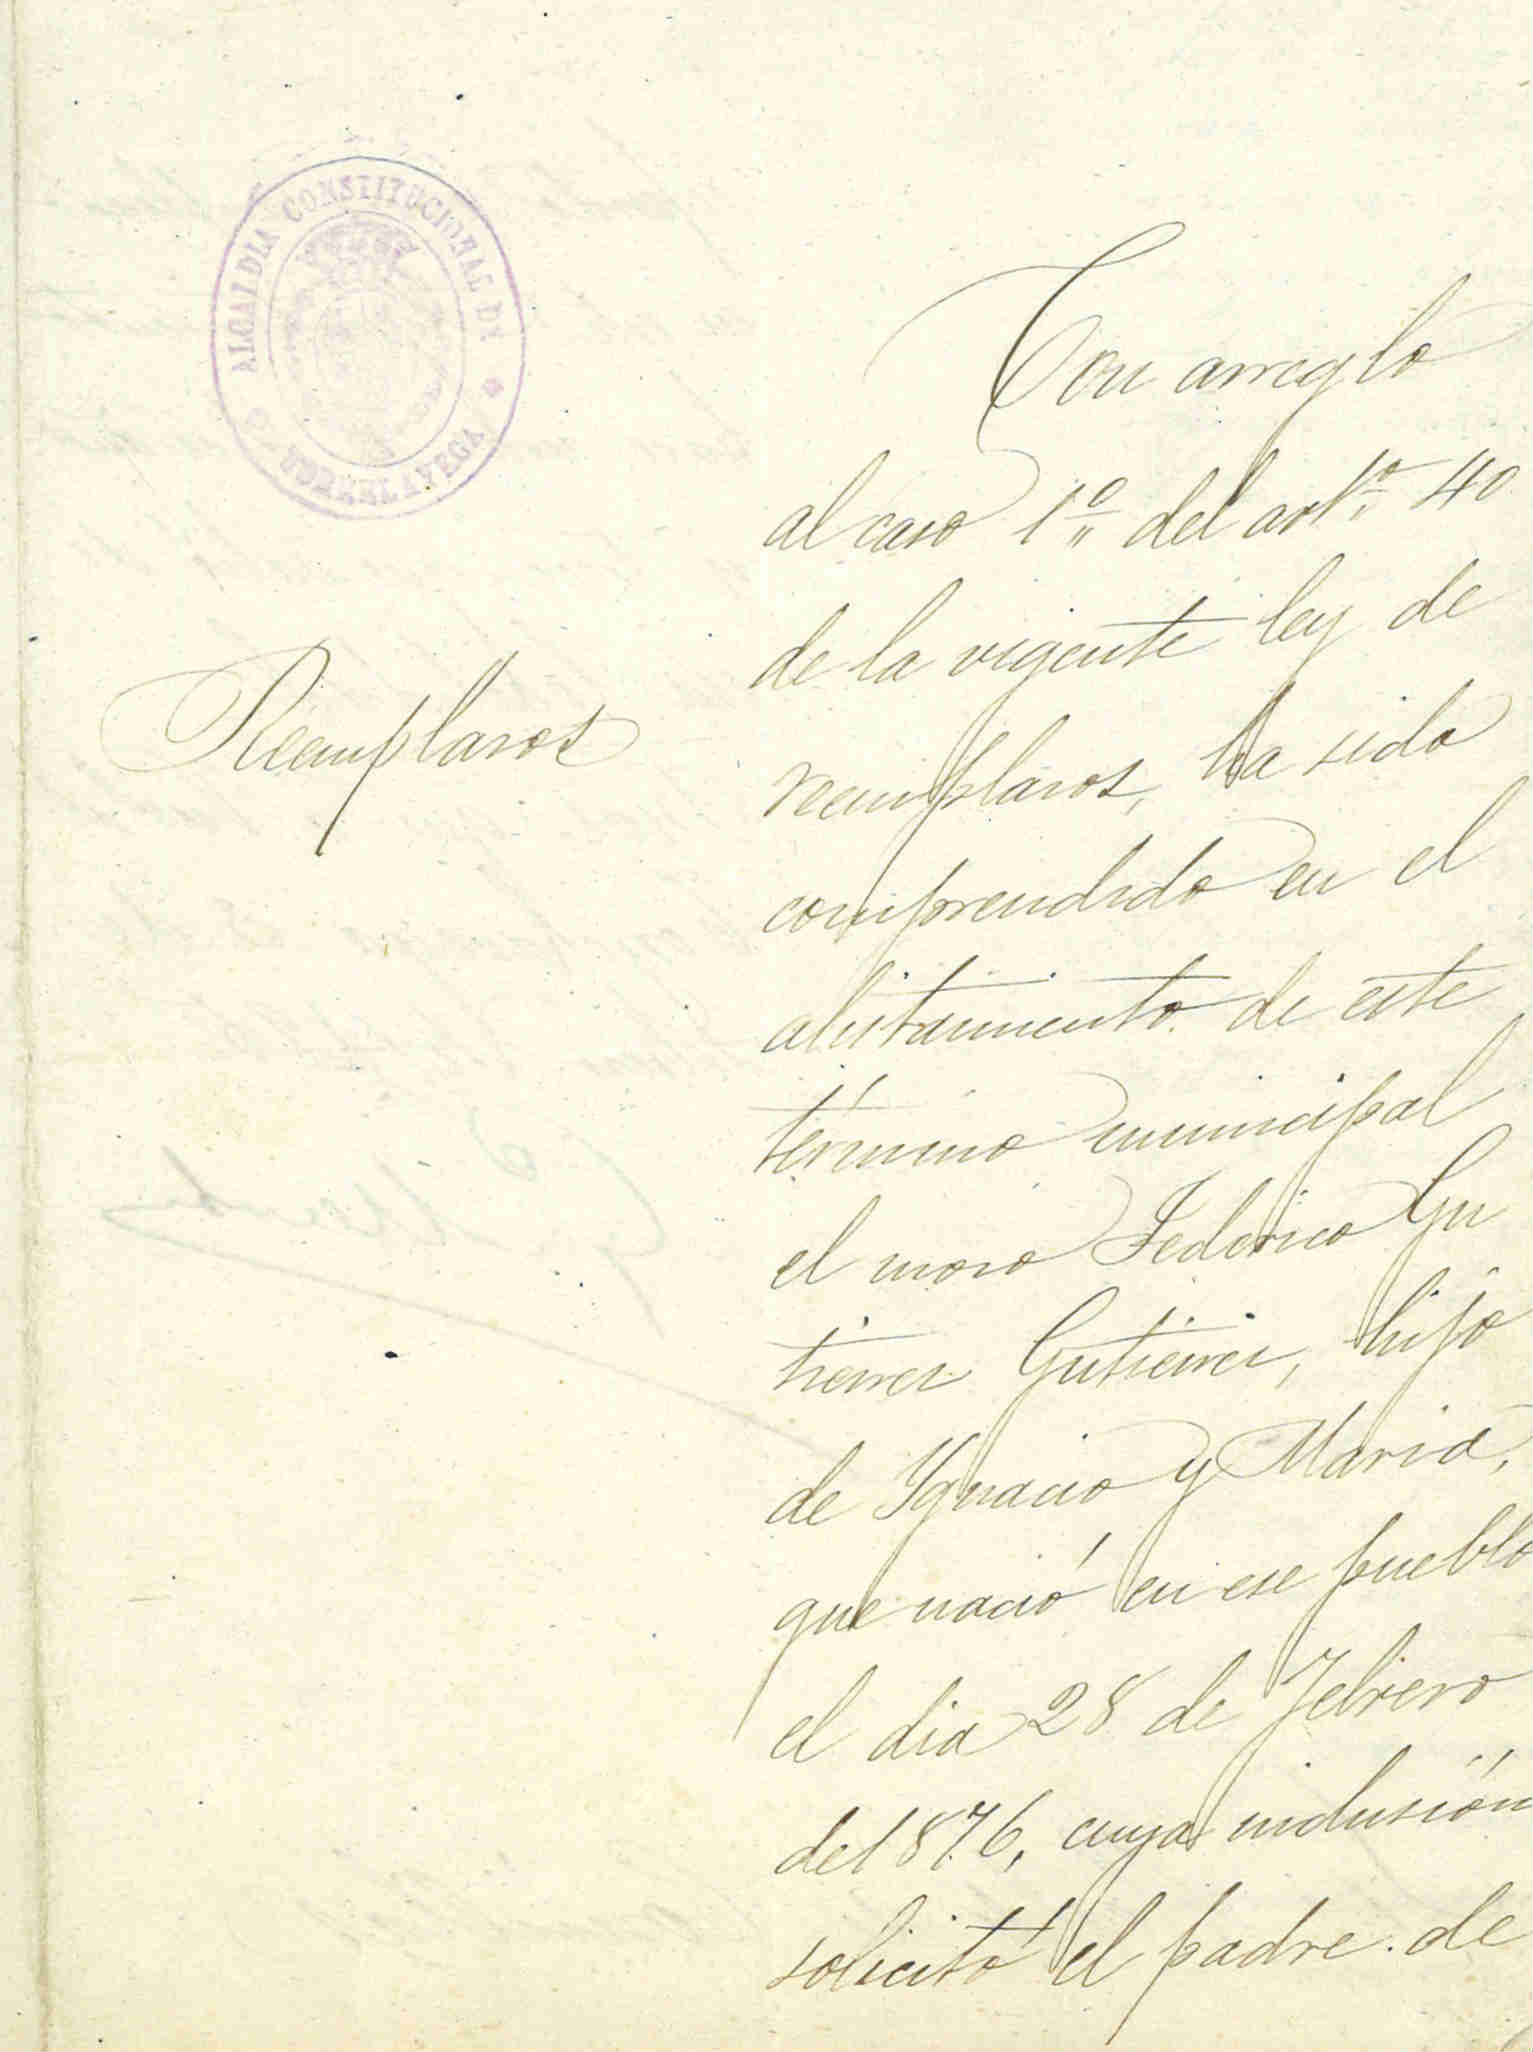 ALCALDIA CONSTITUCIONAL DE
TORRELAVEGA
Reemplazos
Con arreglo
al caso 1º del artº 40
de la vigente ley de
reemplazos, ha sido
comprendido en el
alistamiento de este
término municipal
el mozo Federico Gu
tierrez Gutierrez, hijo
de Ygnacio y Maria,
que nació en ese pueblo
el dia 28 de Febrero
del 1876, cuya inclusión
solicitó el padre de